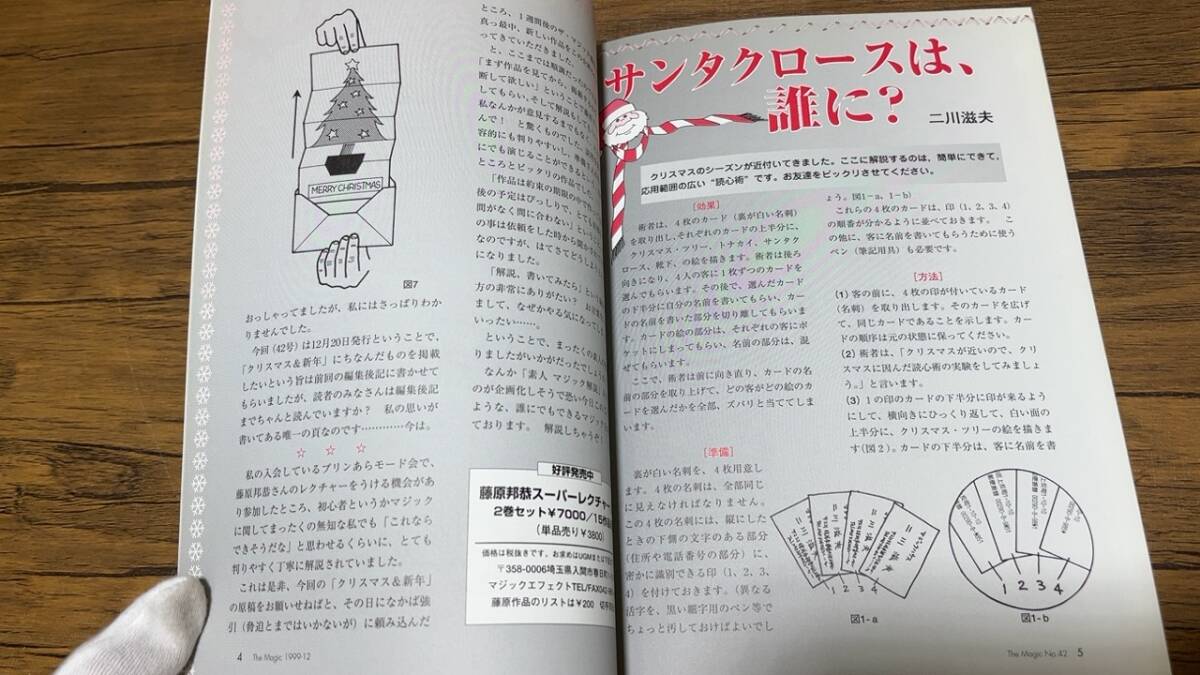 MERRY CHRISTMAS
図7
おっしゃってましたが、私にはさっぱりわか
りませんでした。
今回(42号)は12月20日発行ということで、
「クリスマス&新年」にちなんだものを掲載
したいという旨は前回の編集後記に書かせて
もらいましたが、読者のみなさんは編集後記
までちゃんと読んでいますか? 私の思いが
書いてある唯一の頁なのです…………今は。
☆ ☆ ☆
私の入会しているプリンあらモード会で、
藤原邦恭さんのレクチャーをうける機会があ
り参加したところ、初心者というかマジック
に関してまったくの無知な私でも「これなら
できそうだな」と思わせるくらいに、とても
判りやすく丁寧に解説されていました。
これは是非、今回の「クリスマス&新年」
の原稿をお願いせねばと、その日になかば強
引(脅迫とまではいかないが)に頼み込んだ
ところ、1週間後のザ・マジッ
真っ最中、新しい作品をこの
ってきていただきました。
と、ここまでは順調だった
「まず作品を見てから、掲載
断して欲しい」ということで
してもらい、そして解説もして
私なんかが意見するまでもな
んで! と驚くものでした。
容的にも判りやすいし、準備
にでも演じることができる
ところとピッタリの作品でした
「作品は約束の期限の中で
後の予定はびっしりで、とても
間がなく間に合わない」という
の事は依頼をした時から聞か
なのですが、はてさてどうしよう
になりました。
「解説、書いてみたら」という
方の非常にありがたい?お
まして、なぜかやる気になってし
いったい……。
ということで、まったくの素人
りましたがいかがだったでしょう
なんか「素人 マジック解説」
のが企画化しそうで恐い今日こ
ような、誰にでもできるマジック
ております。 解説しちゃうぞ
好評発売中
藤原邦恭スーパーレクチャー
2巻セット¥7000/15作品
(単品売り¥3800)
価格は税抜きです。お求めはUGMまたは下記
〒358-0006埼玉県入間市春日町
マジックエフェクトTEL/FAX042
藤原作品のリストは¥200 切手
4 The Magic 1999-12
サンタクロースは、
誰に?
二川滋夫
クリスマスのシーズンが近付いてきました。ここに解説するのは、簡単にできて、
応用範囲の広い“読心術”です。お友達をビックリさせてください。
[効果]
術者は、4枚のカード(裏が白い名刺)
を取り出し、それぞれのカードの上半分に、
クリスマス・ツリー、トナカイ、サンタク
ロース、靴下、の絵を描きます。術者は後ろ
向きになり、4人の客に1枚ずつのカードを
選んでもらいます。その後で、選んだカード
の下半分に自分の名前を書いてもらい、カー
ドの名前を書いた部分を切り離してもらいま
す。カードの絵の部分は、それぞれの客にポ
ケットにしまってもらい、名前の部分は、混
ぜてもらいます。
ここで、術者は前に向き直り、カードの名
前の部分を取り上げて、どの客がどの絵のカ
ードを選んだかを全部、ズバリと当ててしま
います。
[準備]
裏が白い名刺を、4枚用意しま
す。4枚の名刺は、全部同じ
に見えなければなりません。
この4枚の名刺には、縦にした
ときの下側の文字のある部分
(住所や電話番号の部分)に、
密かに識別できる印(1、2、3、
4)を付けておきます。(異なる
活字を、黒い細字用のペン等で
ちょっと汚しておけばよいでし
ょう。図1-a、1-b)
これらの4枚のカードは、印(1、2、3、4)
の順番が分かるように並べておきます。 こ
の他に、客に名前を書いてもらうために使う
ペン(筆記用具)も必要です。
[方法]
(1)客の前に、4枚の印が付いているカード
(名刺)を取り出します。そのカードを広げ
て、同じカードであることを示します。カー
ドの順序は元の状態に保ってください。
(2)術者は、「クリスマスが近いので、クリ
スマスに因んだ読心術の実験をしてみましょ
う。」と言います。
(3)1の印のカードの下半分に印が来るよう
にして、横向きにひっくり返して、白い面の
上半分に、クリスマス・ツリーの絵を描きま
す(図2)。カードの下半分は、客に名前を書
二川滋夫
1 2 3 4
図1-a
1 2 3 4
図1-b
The Magic No.42 5